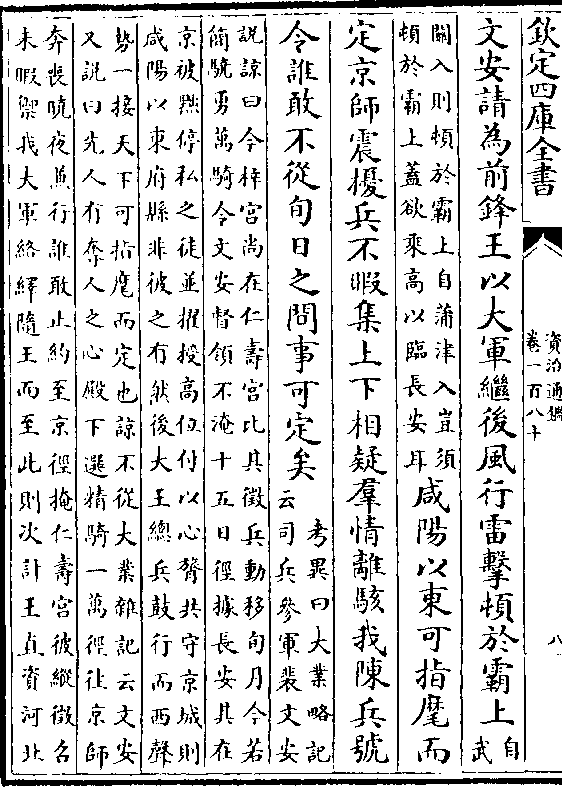 欽定四庫全書
資治通鑑
卷一百八十
八
文安請為前鋒王以大軍繼後風行雷擊頓於霸上自武
關入則頓於霸上自蒲津入豈須
頓於霸上蓋欲乘高以臨長安耳
咸陽以東可指麾而
定京師震擾兵不暇集上下相疑羣情離駭我陳兵號
令誰敢不從旬日之間事可定矣
考異曰大業略記
云司兵參軍裴文安
說諒曰今梓宮尚在仁壽宮比其徵兵動移旬月今若
簡驍勇萬騎令文安督領不淹十五日徑據長安其在
京被黜停私之徒並擢授高位付以心膂共守京城則
咸陽以東府縣非彼之有然後大王總兵鼓行而西聲
勢一接天下可指麾而定也諒不從大業雜記云文安
又說曰先人有奪人之心殿下選精騎一萬徑往京師
奔喪曉夜兼行誰敢止約至京徑掩仁壽宮彼縱徵名
未暇禦我大軍絡繹隨王而至此則次計王直資河北